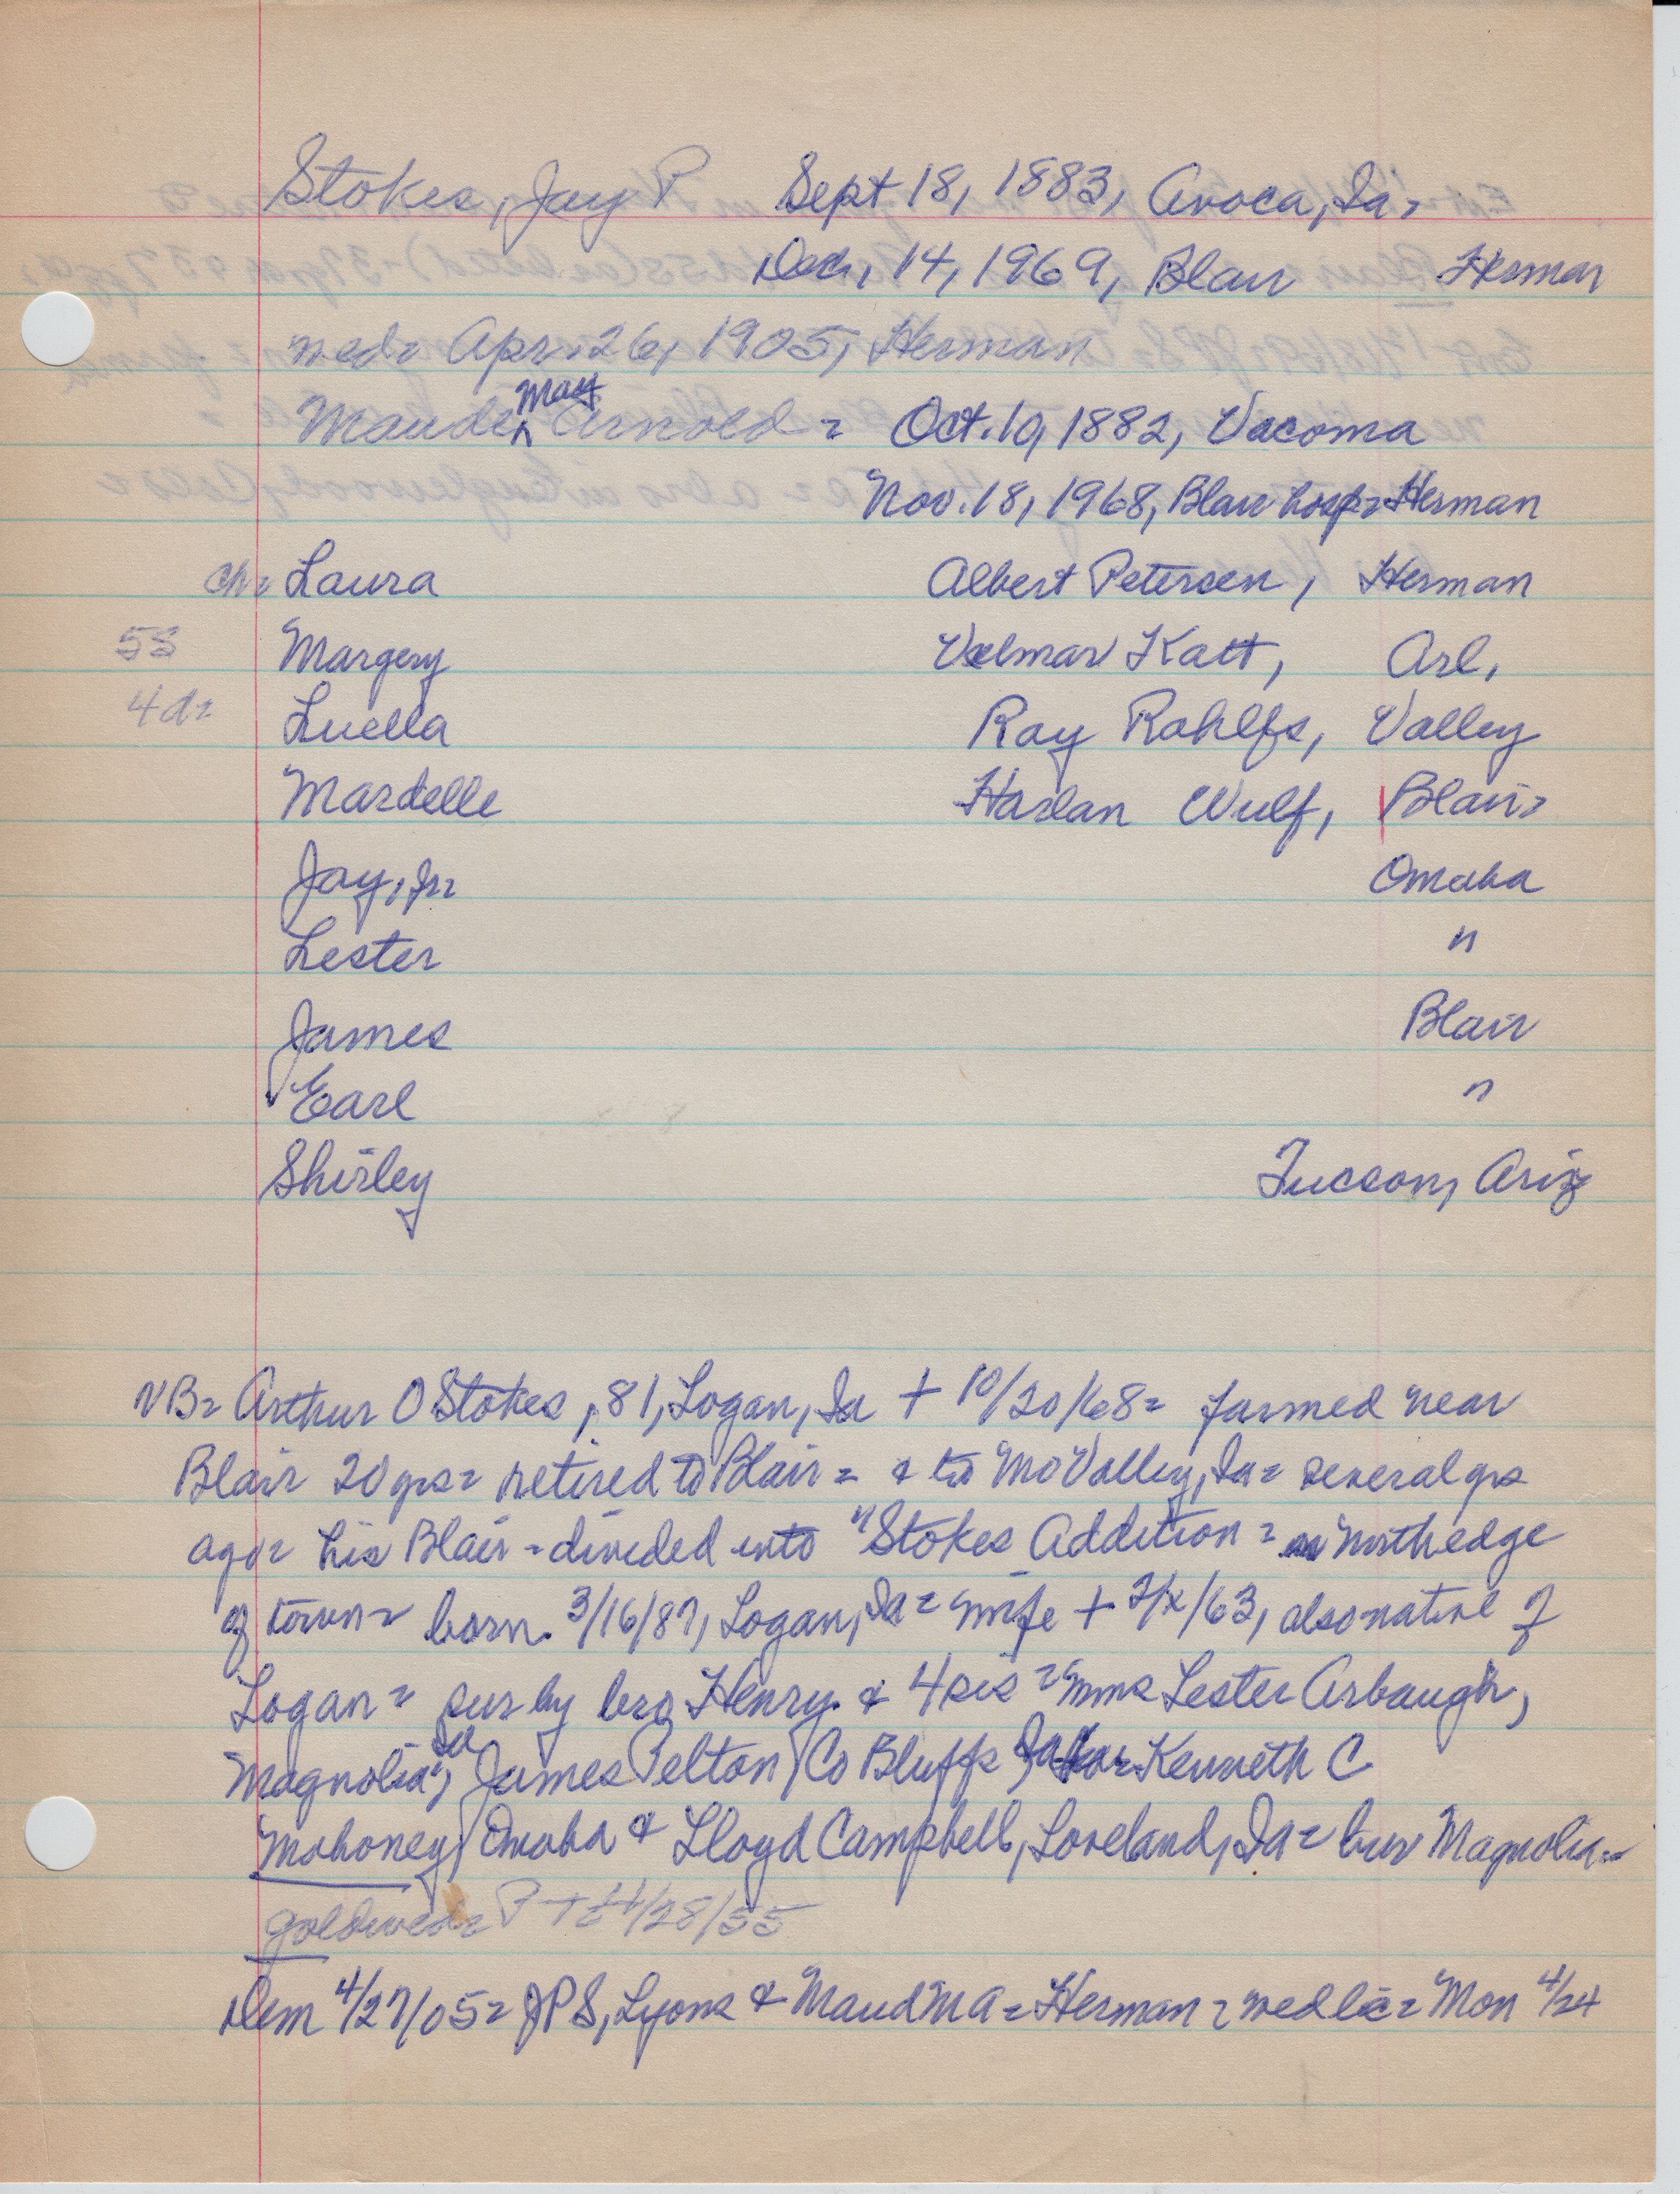 Stokes, Jay P Sept 18, 1883, Avoca, Ia=
Dec, 14, 1969, Blair Herman
wed= Apr. 26, 1905, Herman
Maude May Arnold = Oct. 10, 1882, Vacoma
Nov. 18, 1968, Blair hosp= Herman
ch= Laura Albert Petersen, Herman
5S Margery Velmar Katt, Arl,
4d= Luella Ray Rohlfs, Valley
Mardelle Harlan Wulf, Blair=
Jay, Jr= Omaha
Lester "
James Blair
Earl "
Shirley Tucson, Ariz
VB= Arthur O Stokes, 81, Logan, Ia + 10/20/68= farmed near
Blair 20 yrs= retired to Blair = & to Mo Valley, Ia= several yrs
ago= his Blair - divided into "Stokes Addition = north edge
of town= born 3/16/87, Logan, Ia = wife + 2/x/63, also native of
Logan= sur by bro Henry & 4 sis = Mms Lester Arbaugh,
Magnolia, Ia James Pelton, Co Bluffs, Ia Kenneth C
Mohoney, Omaha & Lloyd Campbell, Loveland, Ia= bur Magnolia=
goldwed= P + E 4/28/55
Dem 4/27/05= JPS, Lyons & Maud M A = Herman = wed lic= Mon 4/24